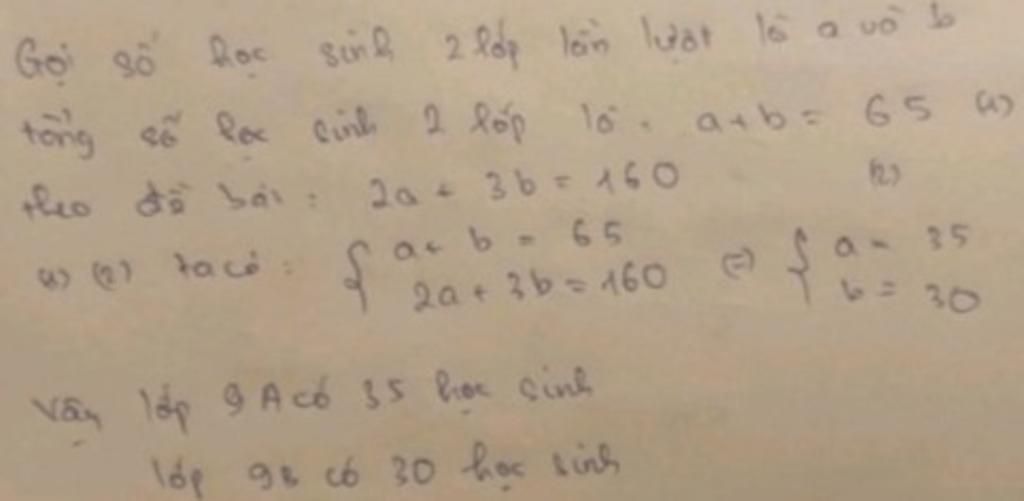 Gọi số học sinh 2 lớp lần lượt là a và b
tổng số học sinh 2 lớp là . a + b = 65 (1)
theo đề bài : 2a + 3b = 160 (2)
(1) (2) ta có : { a + b = 65 2a + 3b = 160 (=) { a = 35 b = 30
Vậy lớp 9A có 35 học sinh
lớp 9B có 30 học sinh